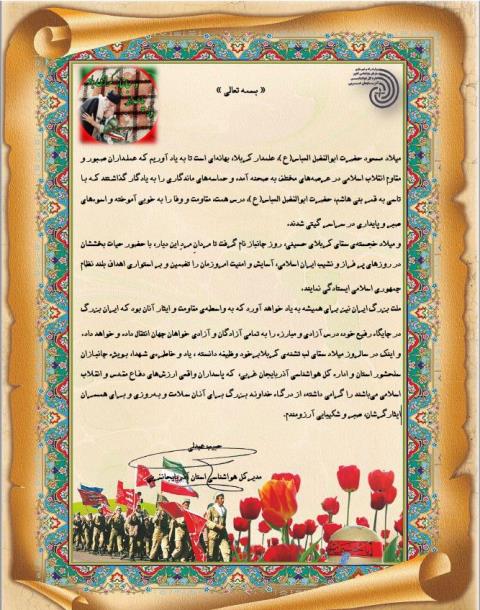 « بسمه تعالی »
میلاد مسعود حضرت ابوالفضل العباس(ع)، علمدار کربلا، بهانه‌ای است تا به یاد آوریم که علمداران صبور و
مقاوم انقلاب اسلامی در عرصه‌های مختلف به صحنه آمده و حماسه‌های ماندگاری را به یادگار گذاشتند که با
تاسی به قمر بنی هاشم، حضرت ابوالفضل العباس(ع)، درس همت، مقاومت و وفا را به خوبی آموخته و اسوه‌های
صبر و پایداری در سراسر گیتی شدند.
و میلاد خجسته‌ی سقای کربلای حسینی، روز جانباز نام گرفت تا مردان مرد این دیار، با حضور حیات بخششان
در روزهای پر فراز و نشیب ایران اسلامی، آسایش و امنیت امروزمان را تضمین و بر استواری اهداف بلند نظام
جمهوری اسلامی ایستادگی نمایند.
ملت بزرگ ایران نیز برای همیشه به یاد خواهد آورد که به واسطه‌ی مقاومت و ایثار آنان بود که ایران بزرگ
در جایگاه رفیع خود، درس آزادی و مبارزه را به تمامی آزادگان و آزادی خواهان جهان انتقال داده و خواهد داد.
و اینک در سالروز میلاد سقای لب تشنه‌ی کربلا بر خود وظیفه دانسته ، یاد و خاطره‌ی شهدا، بویژه جانبازان
سلحشور استان و اداره کل هواشناسی آذربایجان غربی، که پاسداران واقعی ارزش‌های دفاع مقدس و انقلاب
اسلامی می‌باشند را گرامی داشته، از درگاه خداوند بزرگ برای آنان سلامت و بهروزی و برای همسران
ایثارگرشان، صبر و شکیبایی آرزومندم.
حبیب عبدلی
مدیر کل هواشناسی استان آذربایجان‌غربی